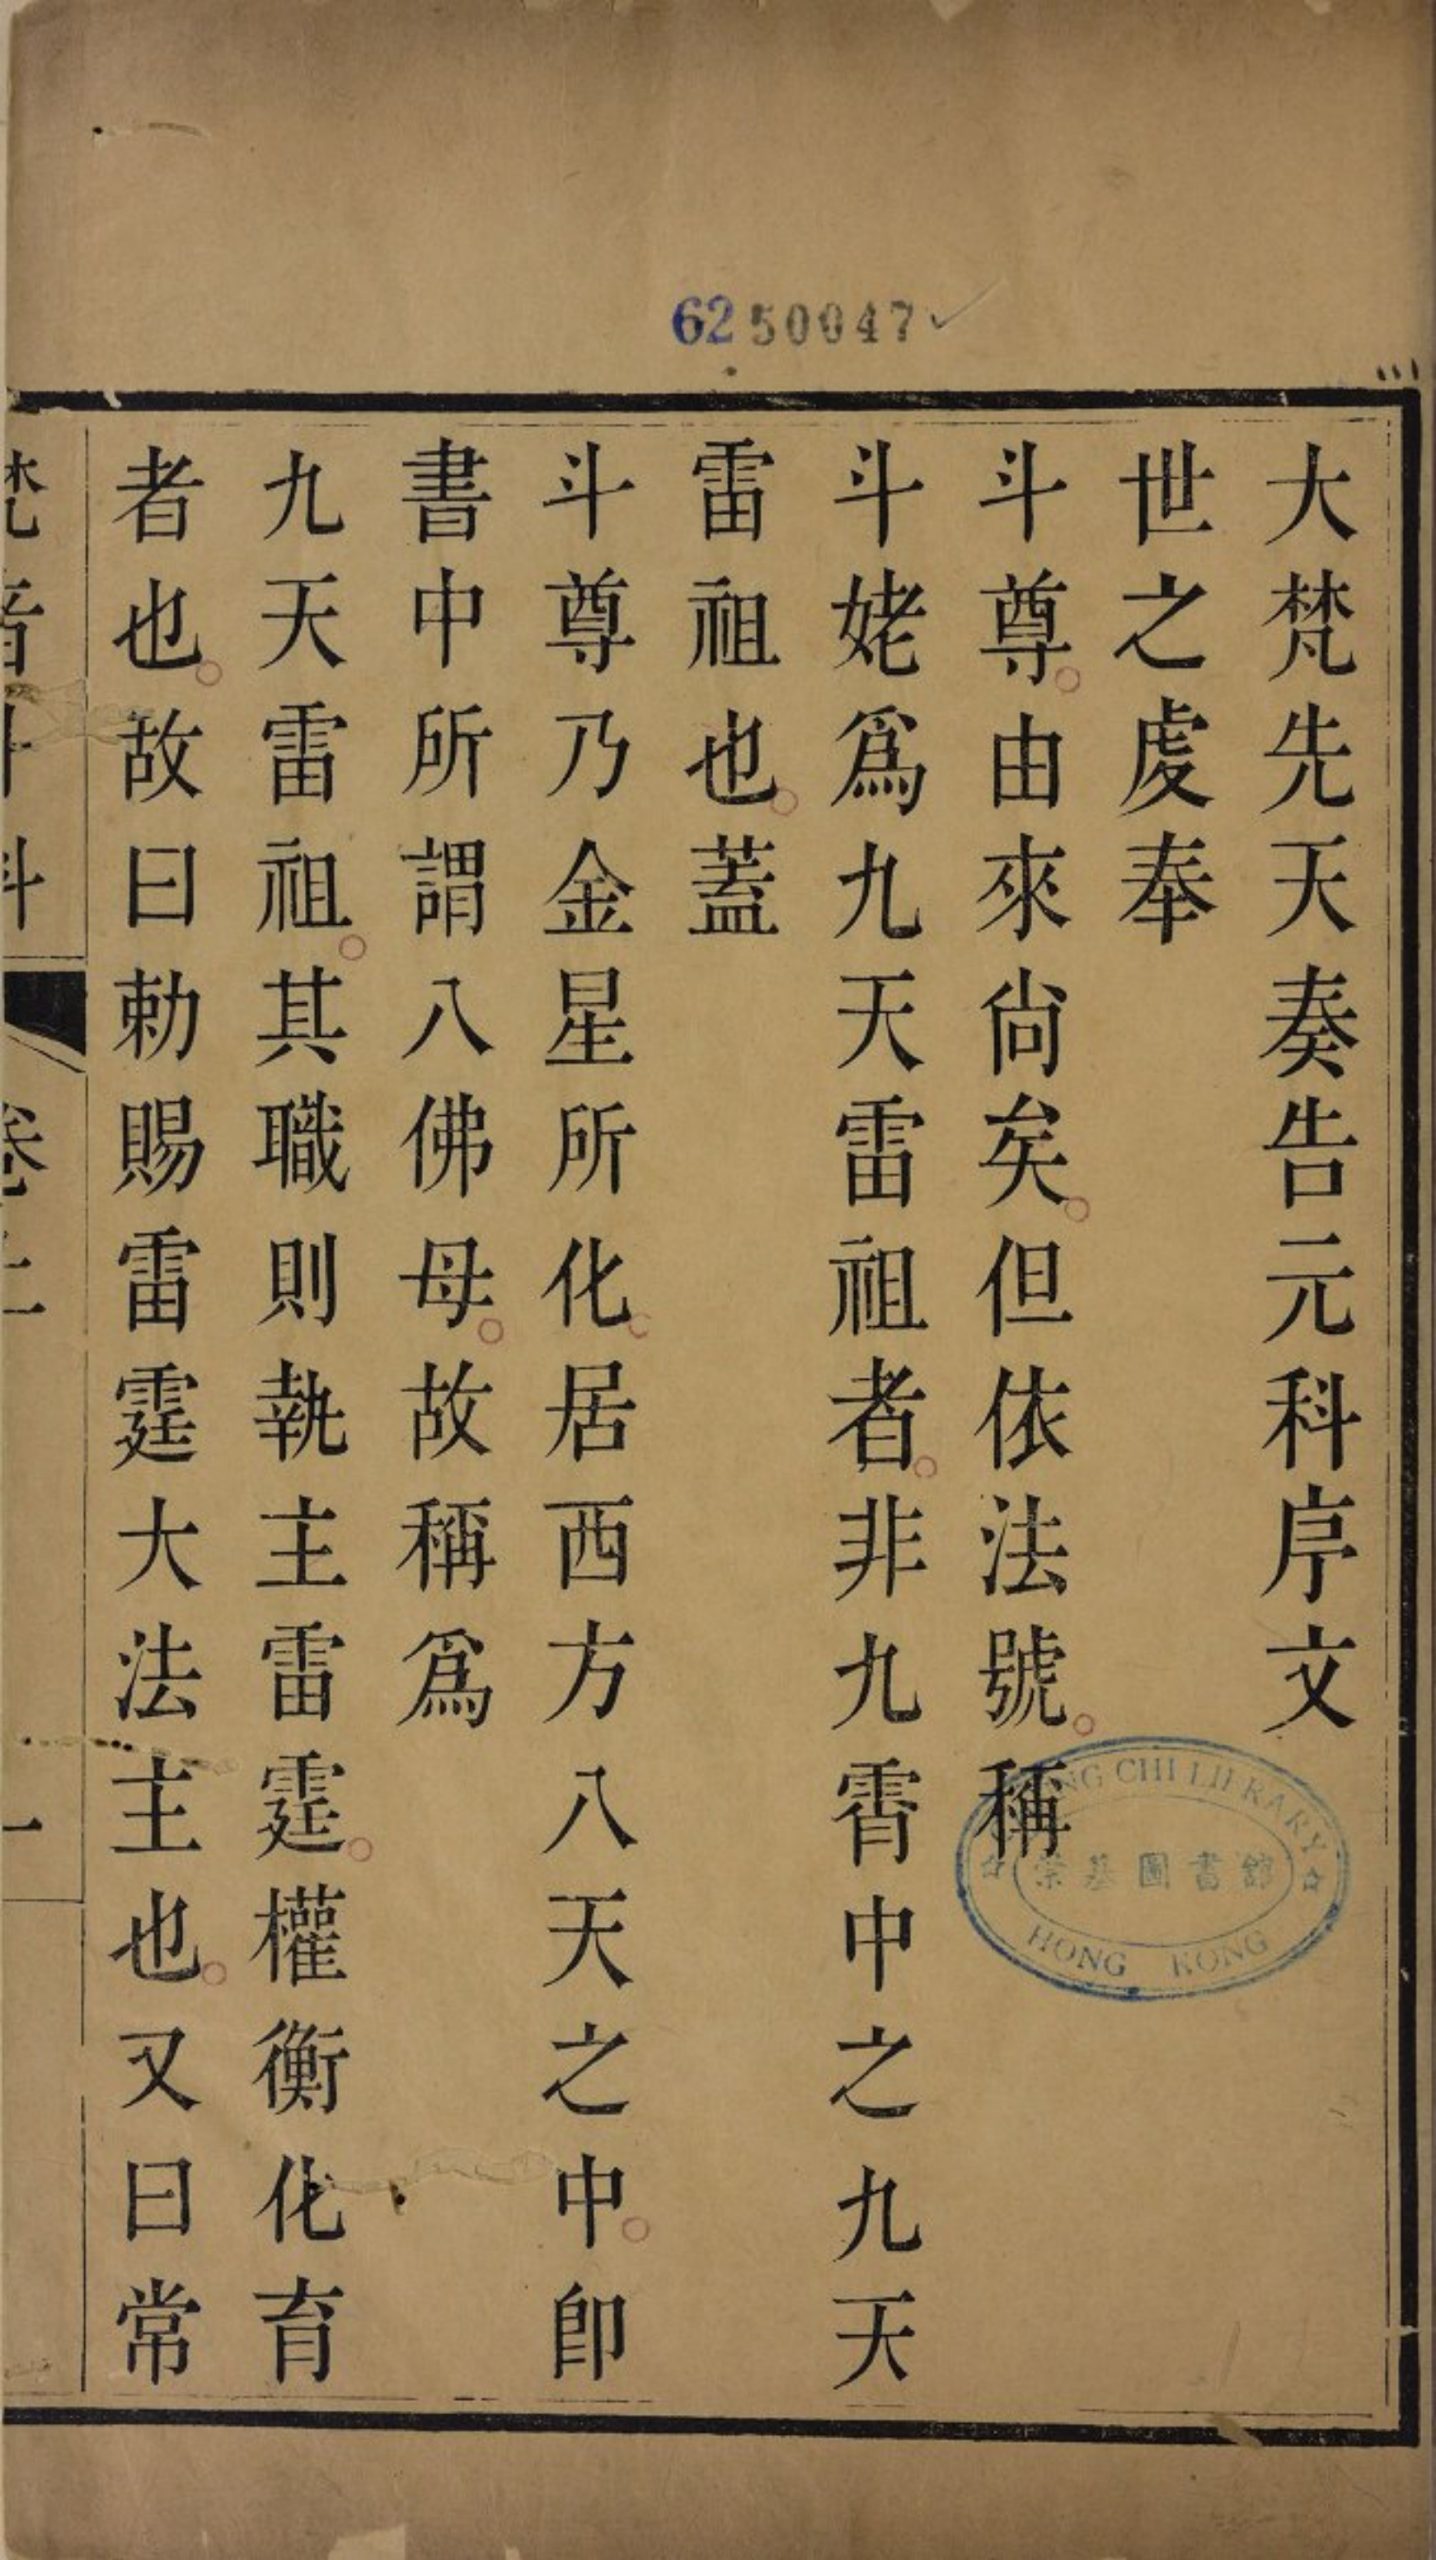 6250047
大梵先天奏告元科序文
世之虔奉
斗尊。由來尙矣。但依法號。稱
斗姥爲九天雷祖者。非九霄中之九天
雷祖也。蓋
斗尊乃金星所化。居西方八天之中。卽
書中所謂八佛母。故稱爲
九天雷祖。其職則執主雷霆。權衡化育
者也。故曰勅賜雷霆大法主也。又曰常
梵音斗科
卷上
一
CHI LIBRARY
崇基圖書館
HONG KONG